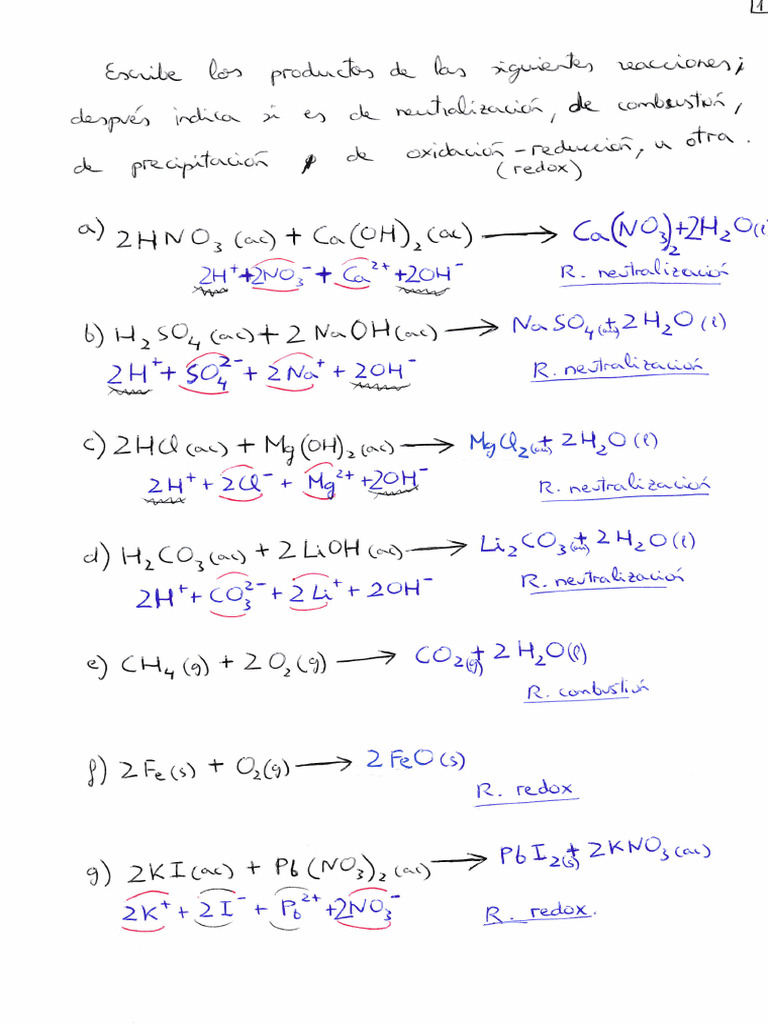 1
Escribe los productos de las siguientes reacciones;
después indica si es de neutralización, de combustión,
de precipitación, de oxidación-reducción, u otra.
(redox)
a) 2HNO₃ (ac) + Ca(OH)₂ (ac) ⟶ Ca(NO₃)₂ + 2H₂O(l)
2H⁺ + 2NO₃⁻ + Ca²⁺ + 2OH⁻ R. neutralización
b) H₂SO₄ (ac) + 2 NaOH (ac) ⟶ NaSO₄(ac) + 2 H₂O (l)
2H⁺ + SO₄²⁻ + 2Na⁺ + 2OH⁻ R. neutralización
c) 2HCl(ac) + Mg(OH)₂ (ac) ⟶ MgCl₂(ac) + 2H₂O(l)
2H⁺ + 2Cl⁻ + Mg²⁺ + 2OH⁻ R. neutralización
d) H₂CO₃(ac) + 2 LiOH (ac) ⟶ Li₂CO₃(ac) + 2H₂O(l)
2H⁺ + CO₃²⁻ + 2Li⁺ + 2OH⁻ R. neutralización
e) CH₄ (g) + 2 O₂ (g) ⟶ CO₂(g) + 2 H₂O(l)
R. combustión
f) 2Fe(s) + O₂(g) ⟶ 2FeO(s)
R. redox
g) 2KI(ac) + Pb(NO₃)₂ (ac) ⟶ PbI₂(s) + 2KNO₃(ac)
2K⁺ + 2I⁻ + Pb²⁺ + 2NO₃⁻ R. redox.